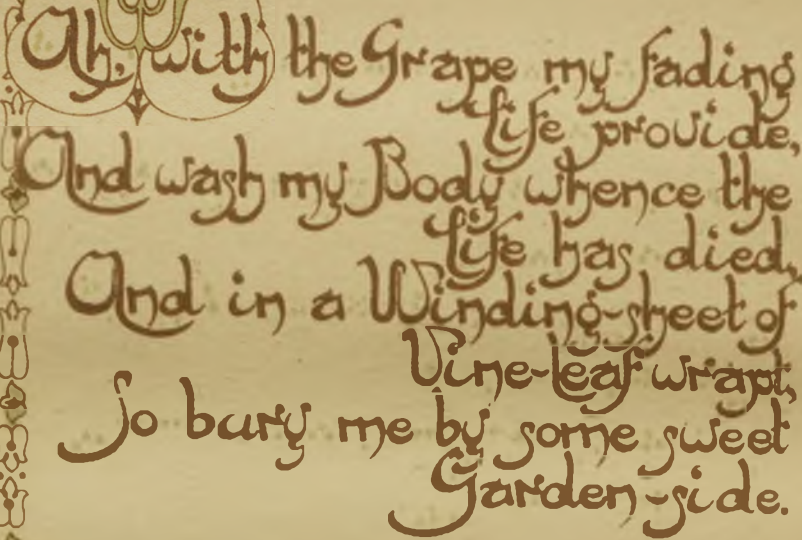 Ah, with the Grape my fading
Life provide,
And wash my Body whence the
Life has died,
And in a Winding-sheet of
Vine-leaf wrapt,
So bury me by some sweet
Garden-side.